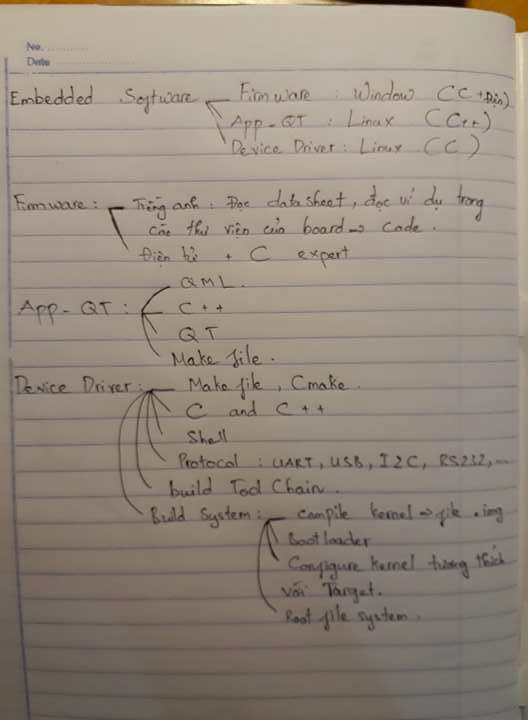 No.
Date
Embedded Software Firmware : Window (C + Điện)
App-QT : Linux (C++)
Device Driver : Linux (C)
Firmware : Tiếng anh : Đọc datasheet, đọc ví dụ trong
các thư viện của board → code.
Điện tử + C expert
QML.
App-QT : C++
QT
Make file.
Device Driver : Make file, Cmake.
C and C++
Shell
Protocol : UART, USB, I2C, RS232,...
build Tool Chain.
Build System : compile kernel → file .img
Bootloader
Configure kernel tương thích
với Target.
Root file system.